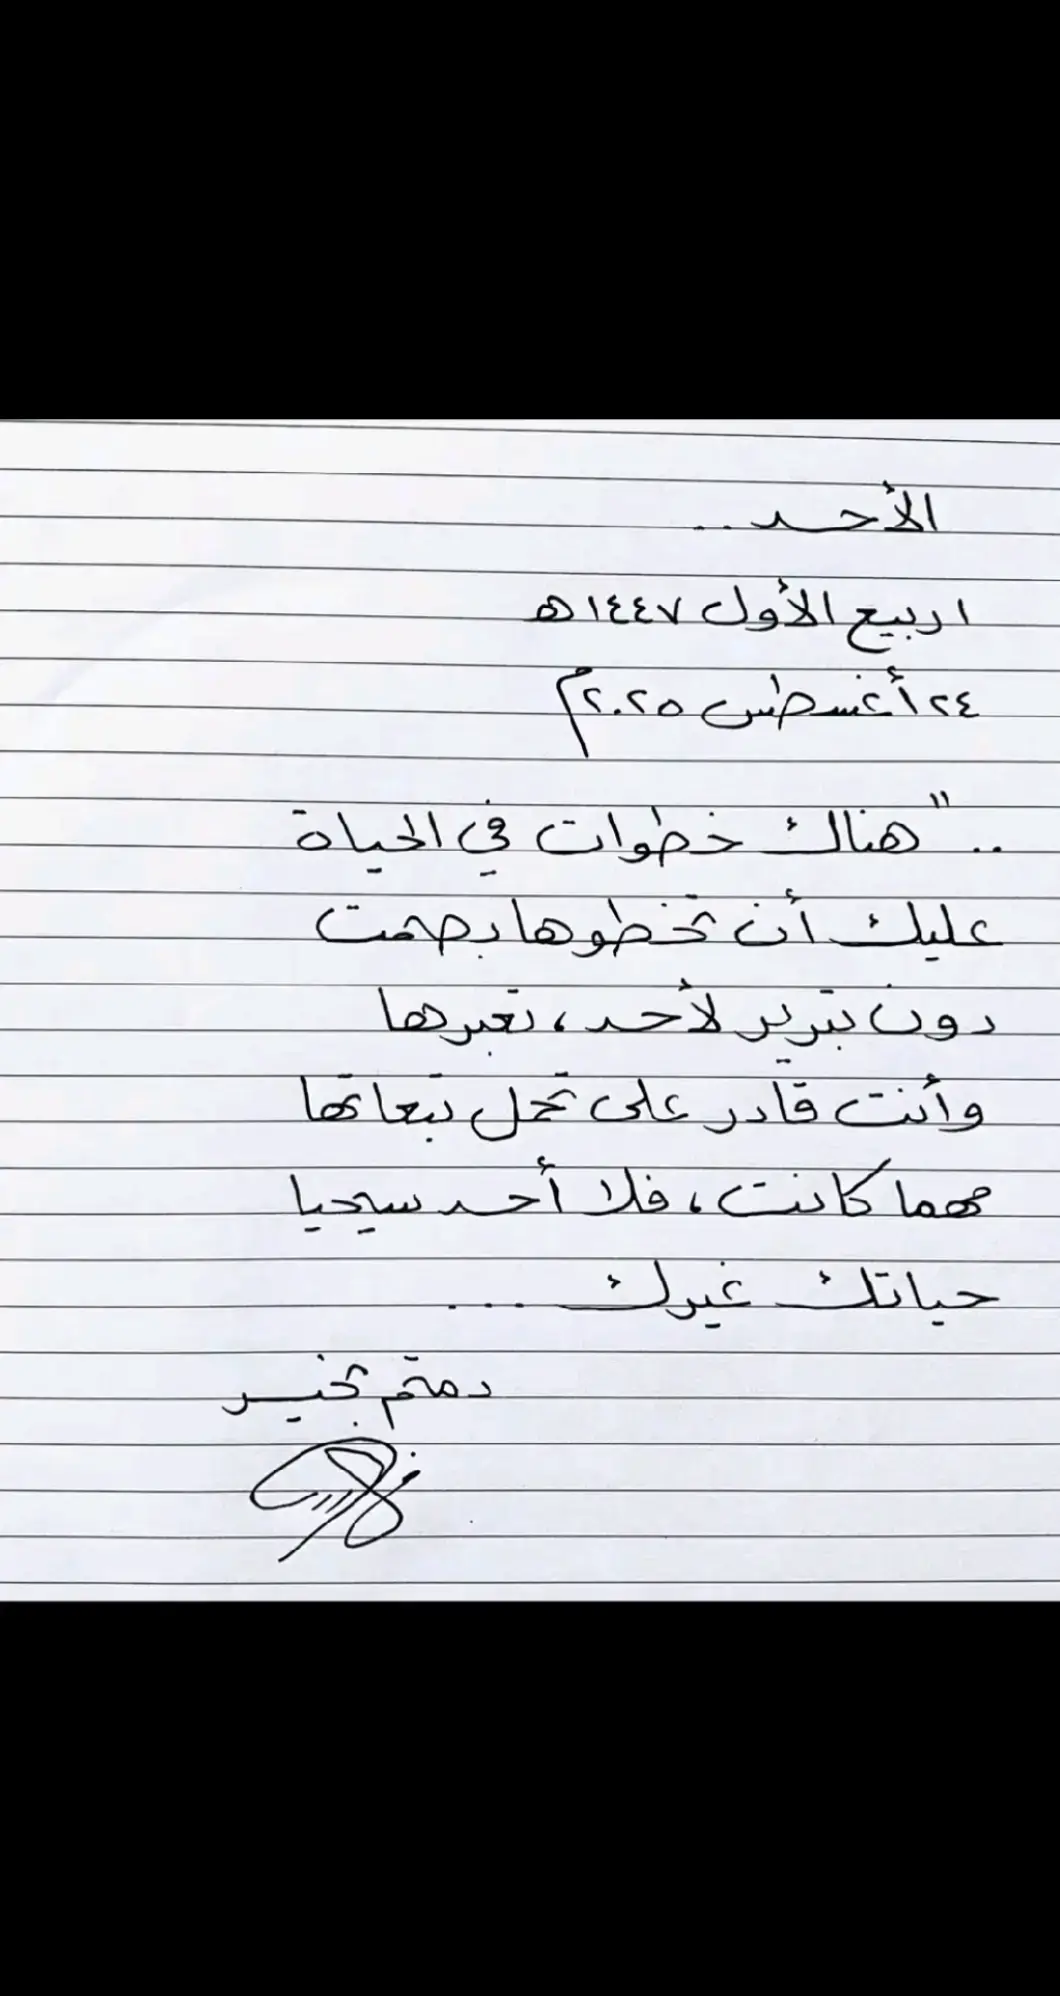 الأحد ..
١ ربيع الأول ١٤٤٧هـ
٢٤ أغسطس ٢٠٢٥م
.. "هناك خطوات في الحياة
عليك أن تخطوها بصمت
دون تبرير لأحد، تعبرها
وأنت قادر على تحمل تبعاتها
مهما كانت، فلا أحد سيحيا
حياتك غيرك ...
دمتم بخير